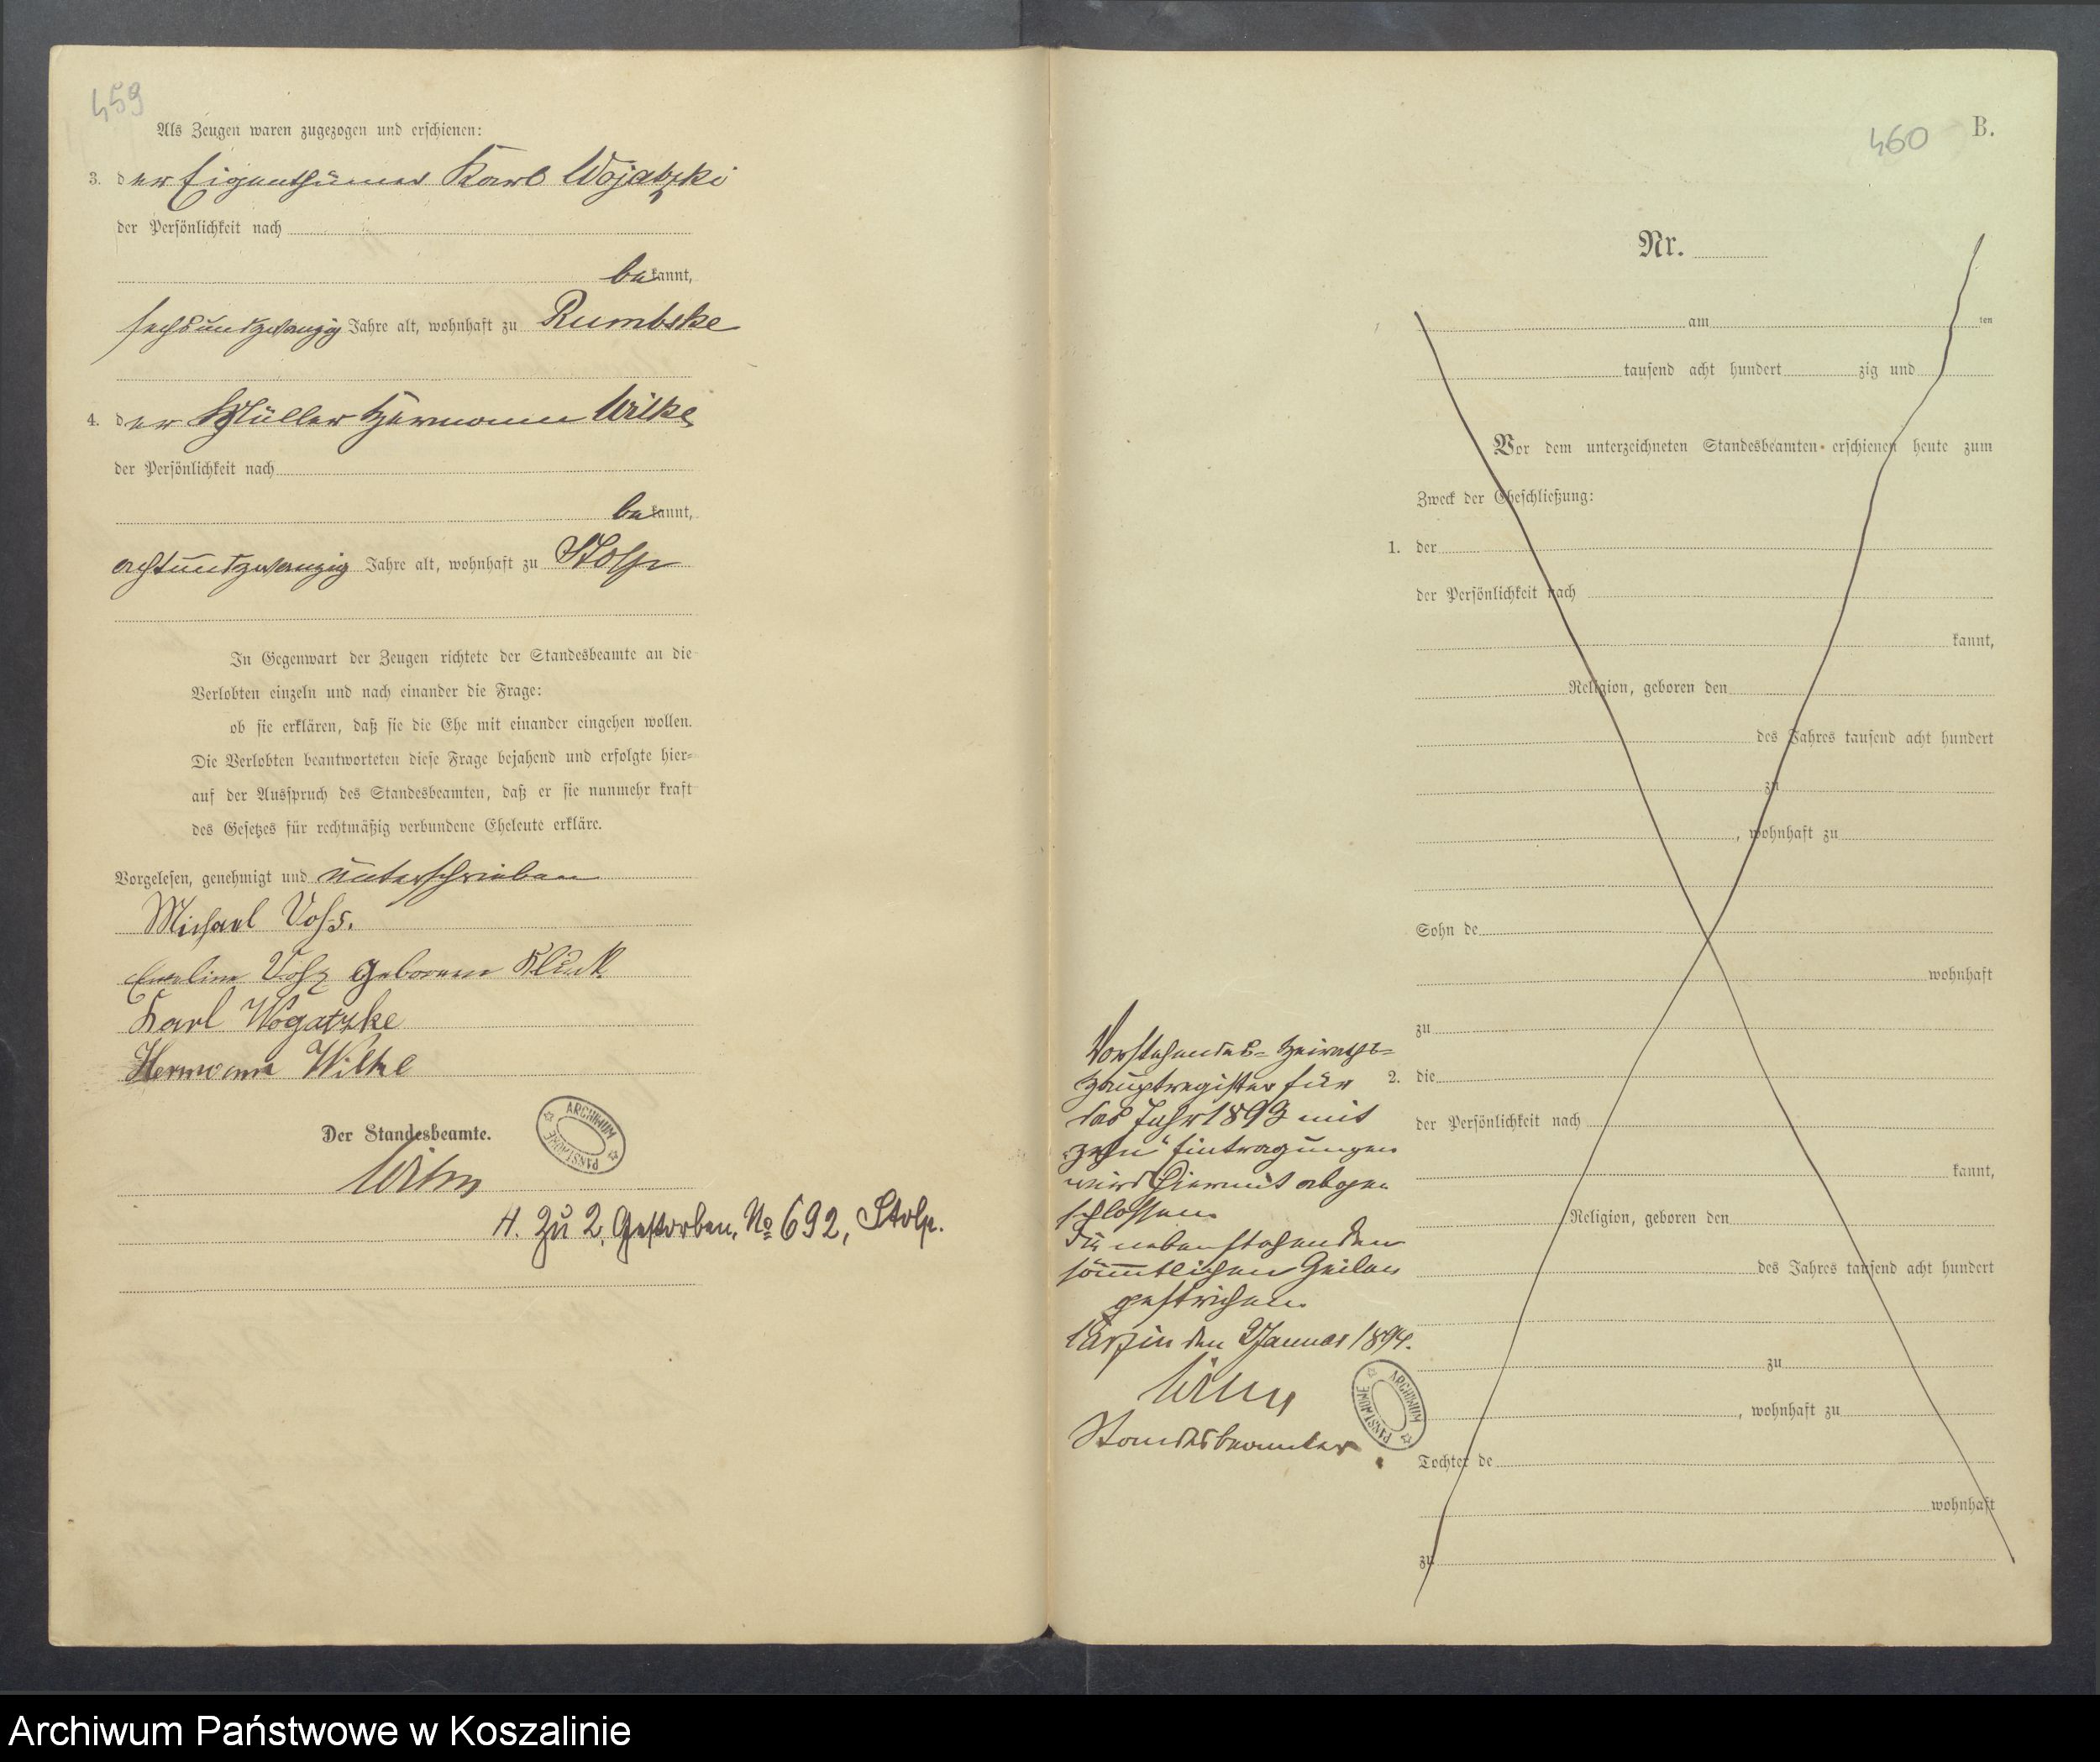 459
Als Zeugen waren zugezogen und erschienen:
3. der Eigenthümer Karl Wojatzki
der Persönlichkeit nach
bekannt,
sechsundzwanzig Jahre alt, wohnhaft zu Rumbske
4. der Müller Hermann Wilke
der Persönlichkeit nach
bekannt,
achtundzwanzig Jahre alt, wohnhaft zu Stolp
In Gegenwart der Zeugen richtete der Standesbeamte an die
Verlobten einzeln und nach einander die Frage:
ob sie erklären, daß sie die Ehe mit einander eingehen wollen.
Die Verlobten beantworteten diese Frage bejahend und erfolgte hier-
auf der Ausspruch des Standesbeamten, daß er sie nunmehr kraft
des Gesetzes für rechtmäßig verbundene Eheleute erkläre.
Vorgelesen, genehmigt und unterschrieben
Michael Voss.
Voss geborene
Karl Wogatzke
Hermann Wilke
Der Standesbeamte.
ARCHIWUM PAŃSTWOWE
H. zu 2. Gestorben. No 692, Stolp.
460 B.
Nr.
am ten
tausend acht hundert zig und
Vor dem unterzeichneten Standesbeamten erschienen heute zum
Zweck der Eheschließung:
1. der
der Persönlichkeit nach
kannt,
Religion, geboren den
des Jahres tausend acht hundert
zu
, wohnhaft zu
Sohn de
wohnhaft
zu
2. die
der Persönlichkeit nach
kannt,
Religion, geboren den
des Jahres tausend acht hundert
zu
, wohnhaft zu
Tochter de
wohnhaft
zu
Vorstehendes Heiraths-
Hauptregister für
das Jahr 1893 mit
"zehn" Eintragungen
wird hiermit abge
schlossen.
Die nebenstehenden
sämmtlichen Zeilen
gestrichen.
den 2 Januar 1894.
Standesbeamter
ARCHIWUM PAŃSTWOWE
Archiwum Państwowe w Koszalinie